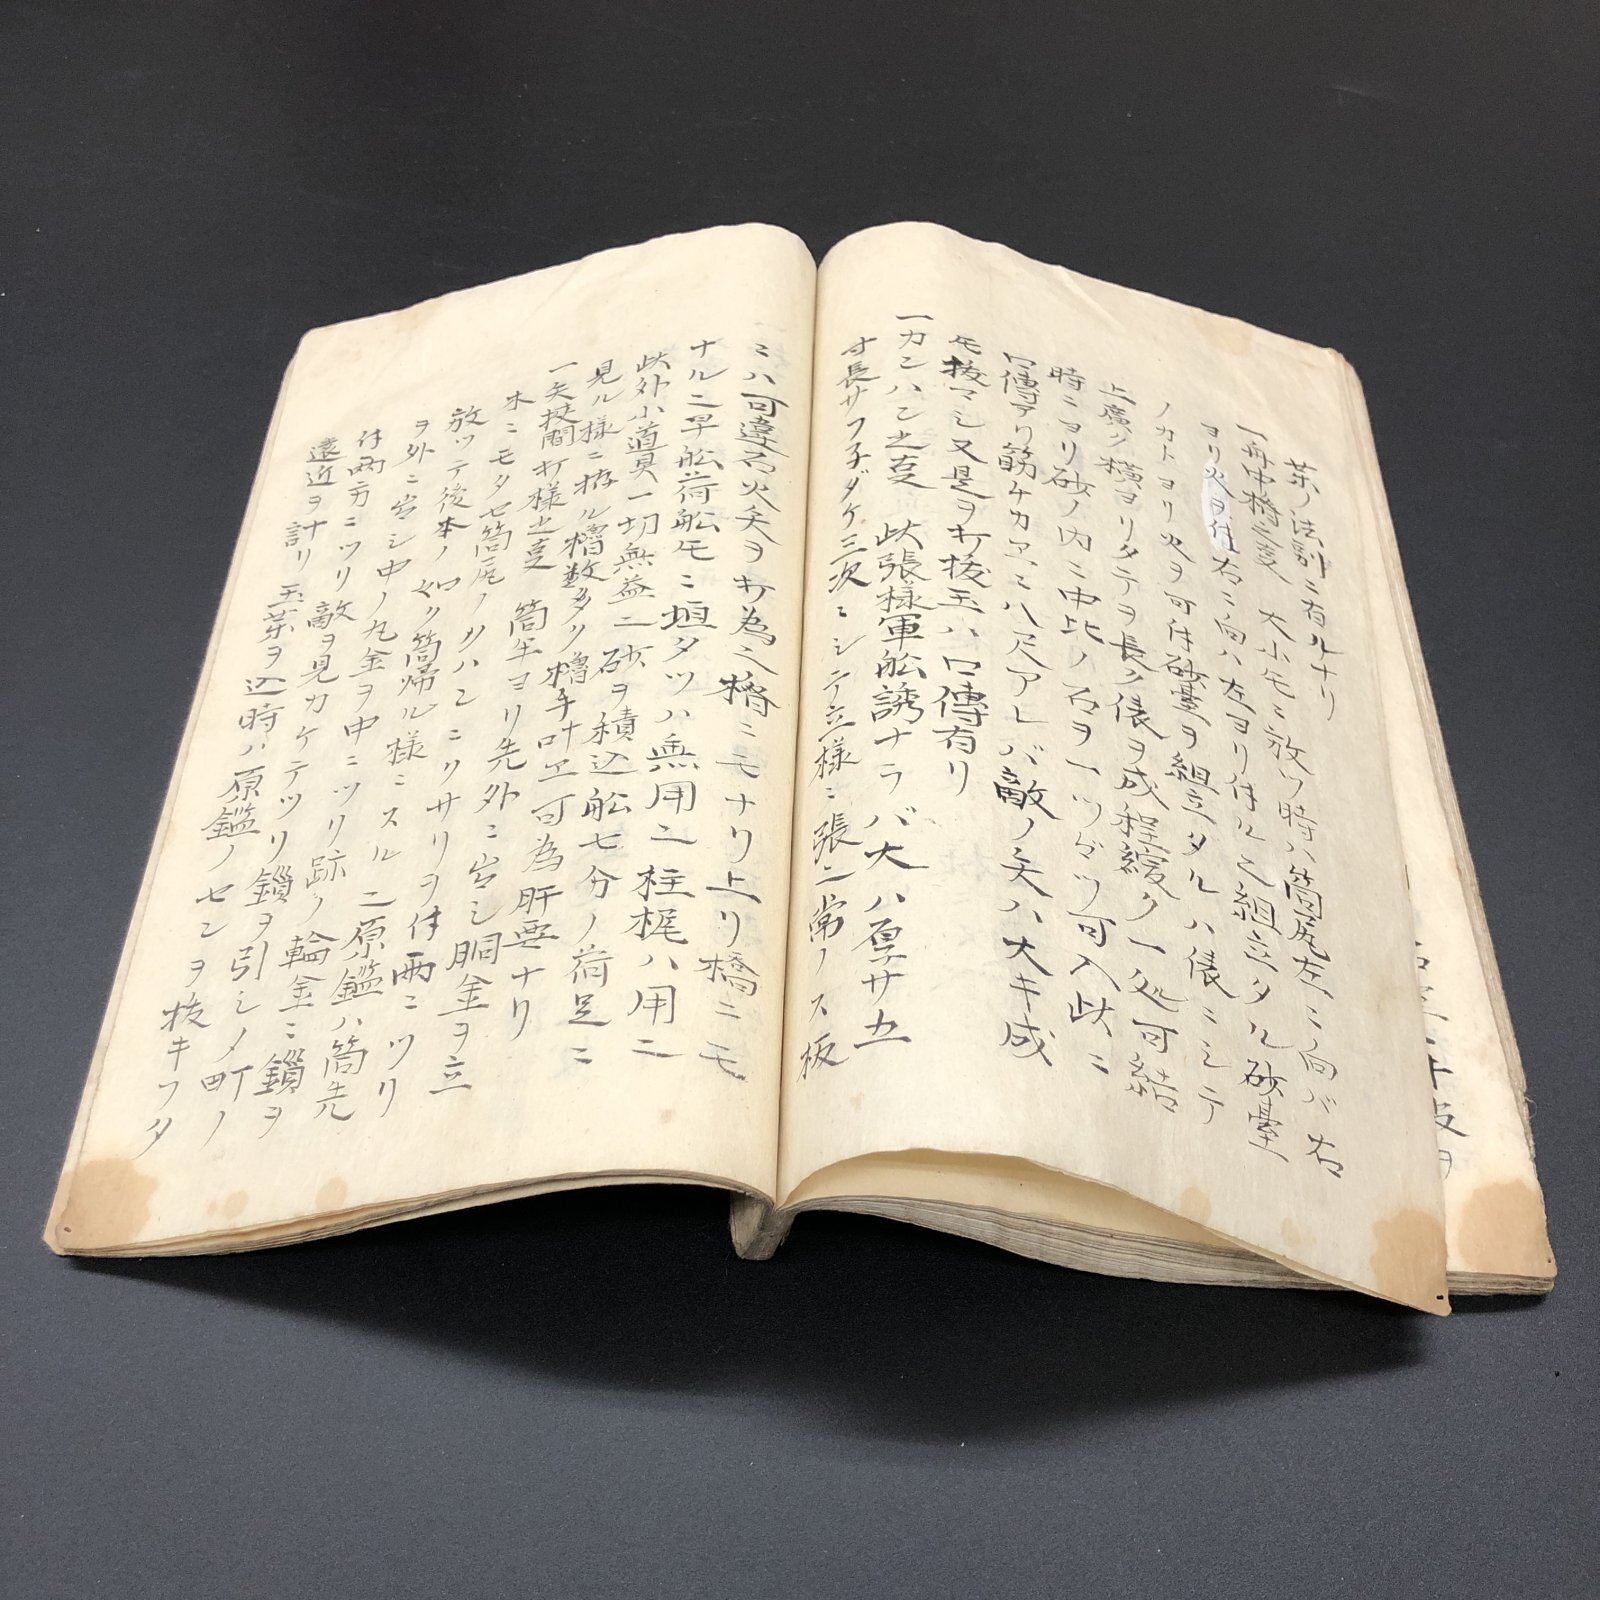 薬ノ法別ニ有ルナリ
一舟中橋之事 大小モニ放ツ時ハ筒尻左ニ向バ右
ヨリ火ヲ付右ニ向ハ左ヨリ付ル也組立タル砂臺
ノカトヨリ火ヲ可付砂臺ヲ組立タルハ俵ニシテ
上廣ク横ヨリタテヲ長ク俵ヲ成程緩ク一処可結
時ニヨリ砂ノ内ニ中比ノ石ヲ一ツヅツ可入此ニ
口傳アリ筋チカヱニ八尺アレバ敵ノ矢ハ大キ成
モ抜マシ又是ヲ打抜玉ハ口傳有リ
一カンハン之事 此張様軍舩誘ナラバ大ハ厚サ五
寸長サフチダケ三次ニシテ立様ニ張ニ常ノス板
ニハ可違石火矢ヲ打為ニ櫓ニモナリ上リ橋ニモ
ナルニ早舩荷舩モニ垣タツハ無用ニ柱梶ハ用ニ
此外小道具一切無益ニ砂ヲ積込舩七分ノ荷足ニ
見ル様ニ拵ル櫓数多リ櫓手叶ヱ可為肝要ナリ
一矢挾間打様之事 筒先ヨリ先外ニ出シ胴金ヲ立
木ニモタセ筒尻ノカハニクサリヲ付両ニツリ
放ツテ後本ノ如ク筒帰ル様ニスルニ原鑑ハ筒先
ヲ外ニ出シ中ノ丸金ヲ中ニツリ跡ノ輪金ニ鎖ヲ
付両方ニツリ敵ヲ見カケテツリ鎖ヲ引シメ町ノ
遠近ヲ計リ玉薬ヲ込時ハ原鑑ノセンヲ抜キフタ